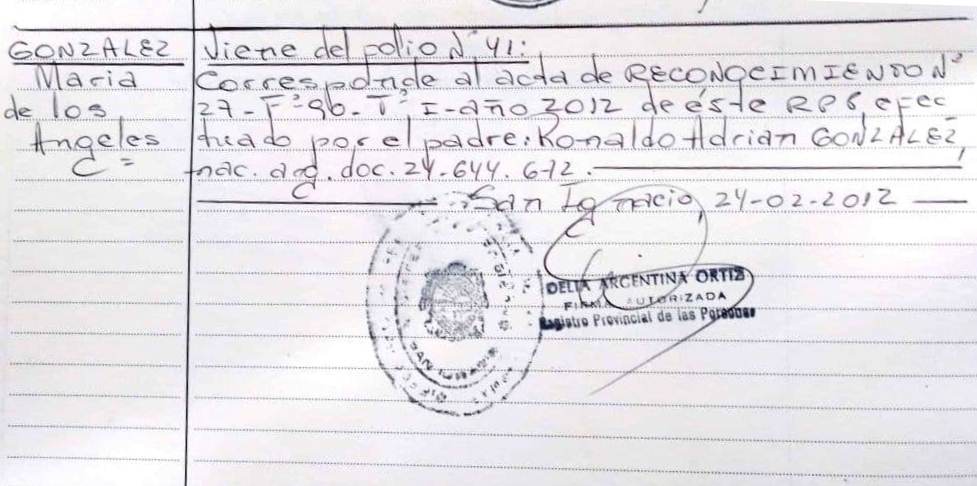 GONZALEZ
Maria
de los
Angeles
Viene del folio Nº 41:
Corresponde al acta de RECONOCIMIENTO Nº
27-Fº96-Tº I-año 2012 de éste RPS, efec
tuado por el padre: Ronaldo Adrian GONZALEZ,
nac. arg. doc. 24.644.672.
San Ignacio, 24-02-2012
DELIA ARGENTINA ORTIZ
FIRMA AUTORIZADA
Registro Provincial de las Personas
SAN IGNACIO